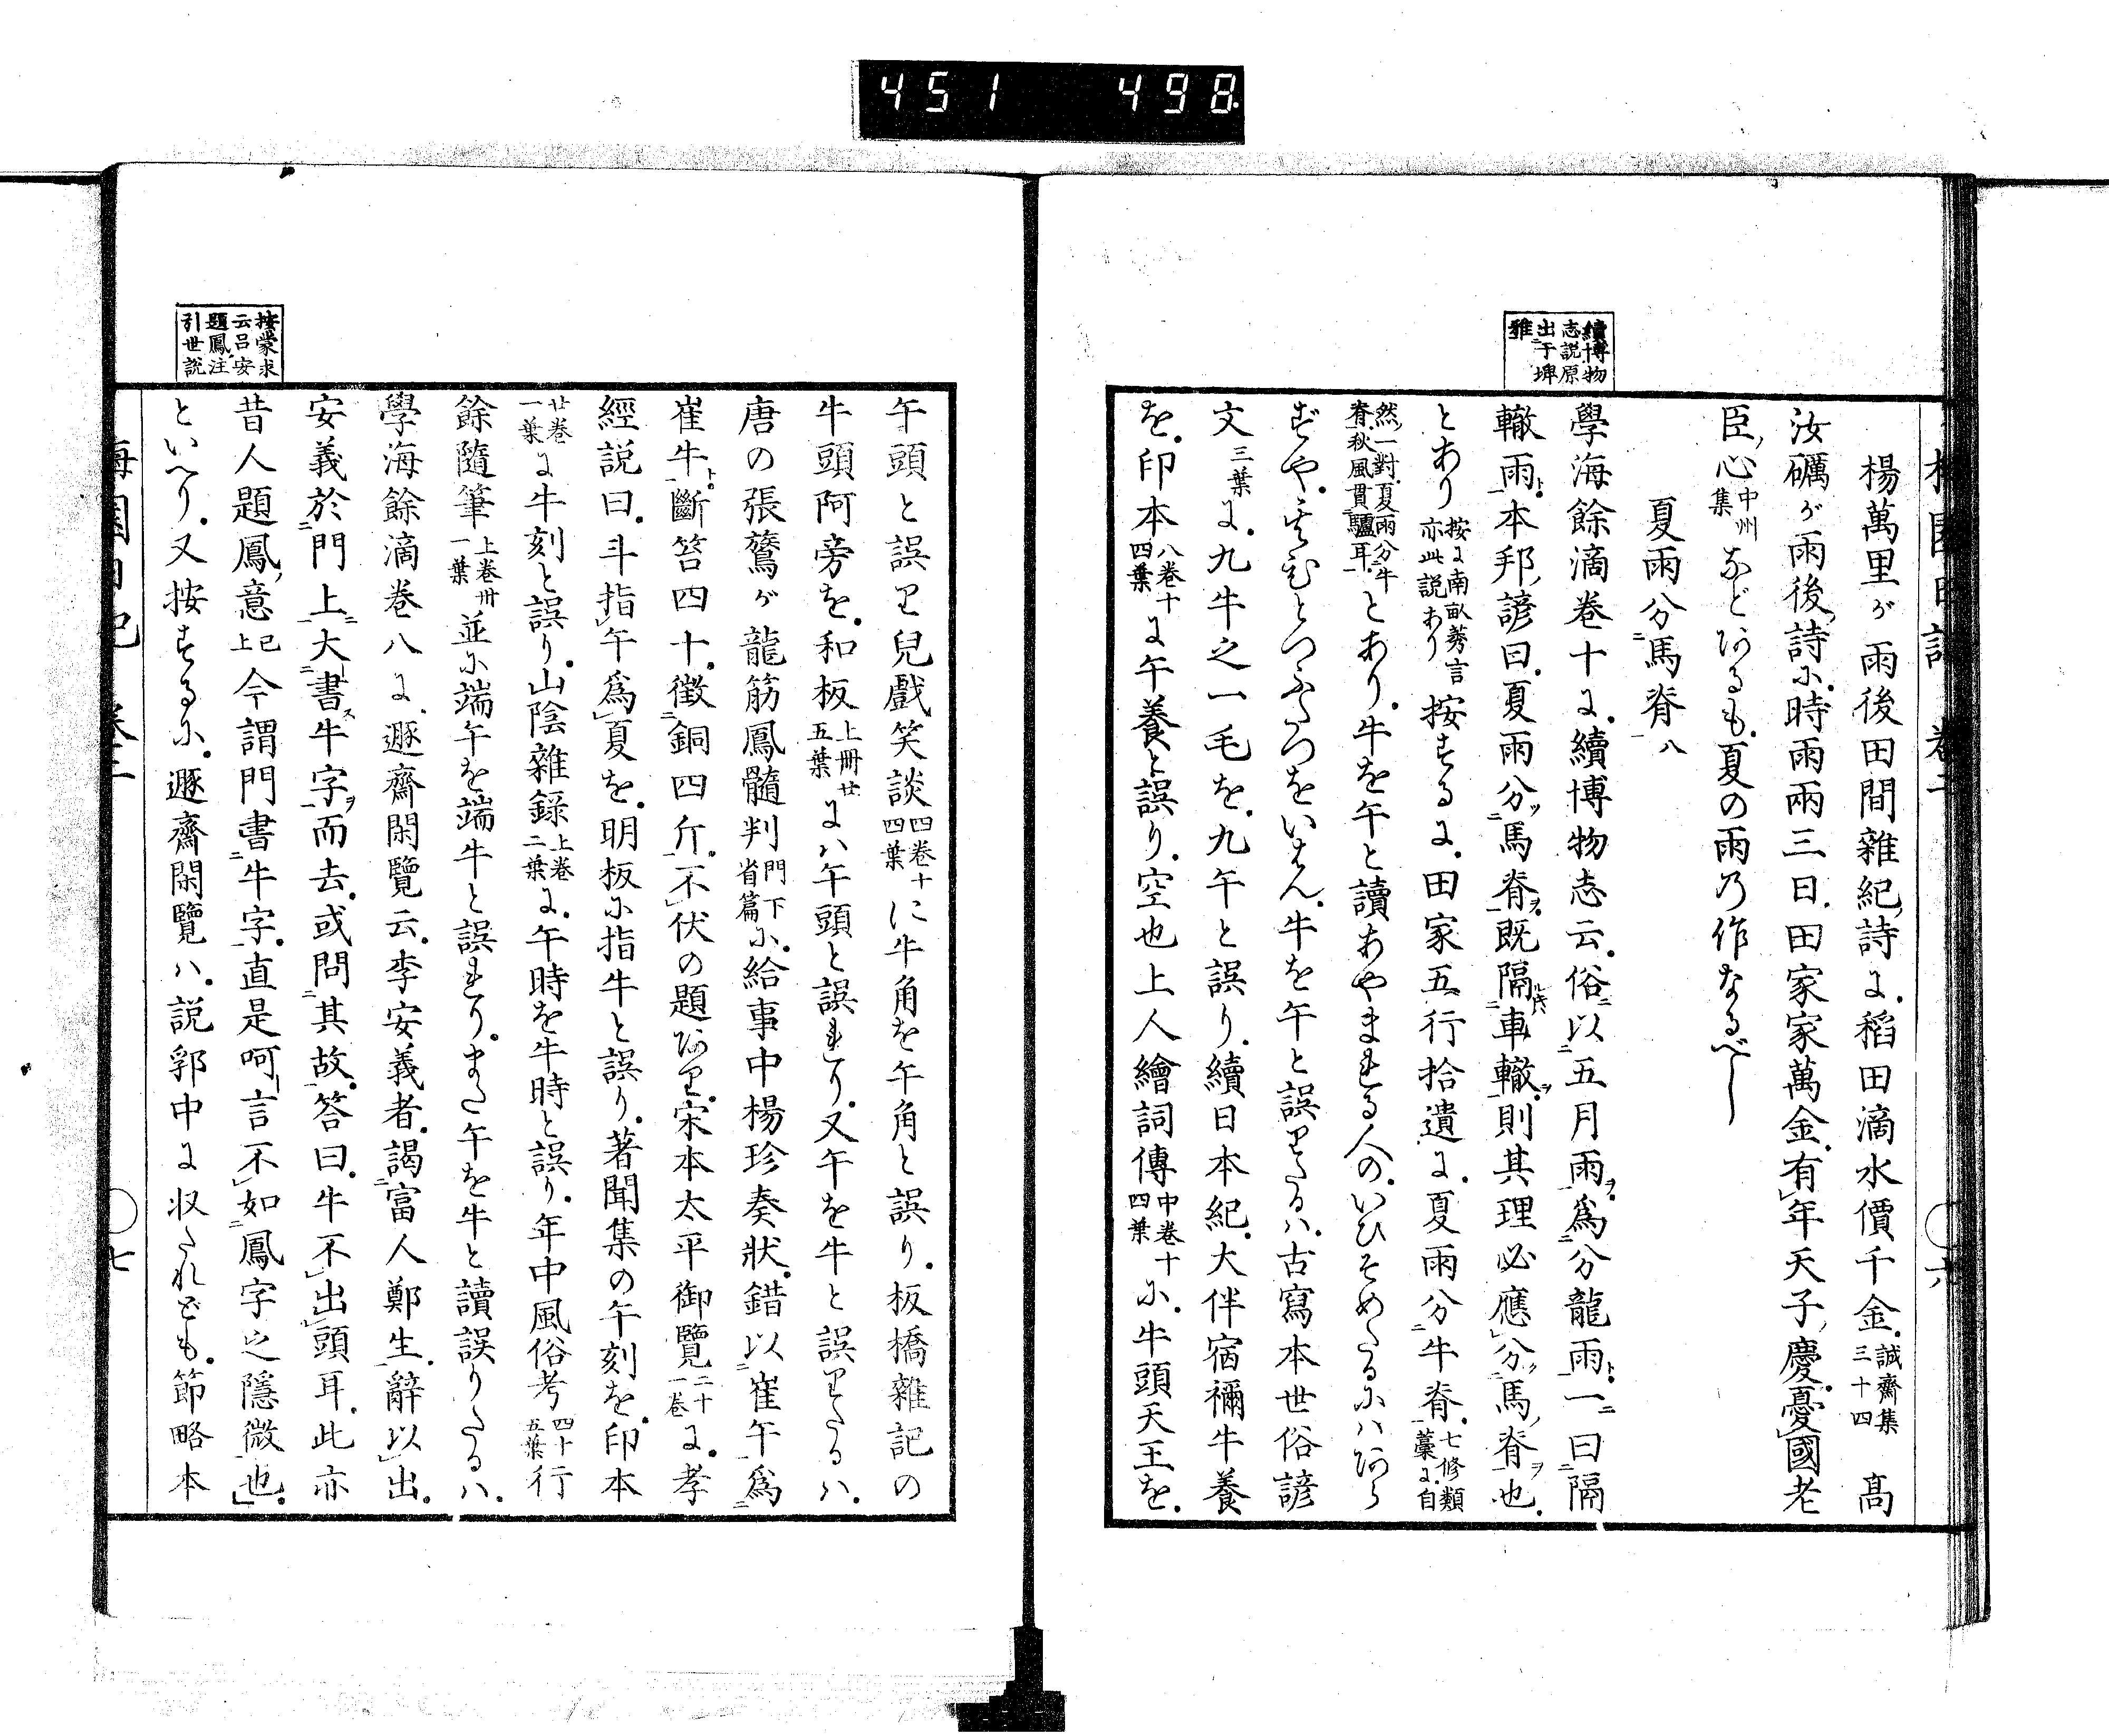 451 498
續博物
志説原
出于埤
雅
楊萬里ガ雨後田間雜紀詩ニ稻田滴水價千金誠齋集三十四 髙
汝礪ガ雨後詩に時雨雨三日田家家萬金有年天子慶憂國老
臣心中州集などあるも夏の雨乃作なるべし
夏雨分馬脊八
學海餘滴卷十に續博物志云俗以五月雨爲分龍雨一曰隔
轍雨本邦諺曰夏雨分馬脊既隔車轍則其理必應分馬脊也
とあり按に南畝莠言亦此説あり按ずるに田家五行拾遺に夏雨分牛脊七修類藁に自
然一對夏雨分牛脊秋風貫驢耳とあり牛を午と讀あやまれる人のいひそめたるにハあら
文三葉に九牛之一毛を九午と誤り續日本紀大伴宿禰牛養
を印本八卷十四葉に午養と誤り空也上人繪詞傳中卷十四葉に牛頭天王を
梅園日記 卷二 六
按蒙求
云呂安
題鳳注
引世説
午頭と誤り兒戲笑談四卷十四葉に牛角を午角と誤り板橋雜記の
牛頭阿旁を和板上冊廿五葉にハ午頭と誤れり又午を牛と誤りたるハ
唐の張鷟ガ龍筋鳳髓判門下省篇に給事中楊珍奏狀錯以崔午爲
崔牛斷笞四十徵銅四斤不伏の題あり宋本太平御覽二十一卷に孝
經説曰斗指午爲夏を明板に指牛と誤り著聞集の午刻を印本
廿卷一葉に牛刻と誤り山陰雜録上卷二葉に午時を牛時と誤り年中風俗考四十五葉行
餘隨筆上卷卅一葉並に端午を端牛と誤れりまた午を牛と讀誤りたるハ
學海餘滴卷八に遯齋閑覽云李安義者謁富人鄭生辭以出
安義於門上大書牛字而去或問其故答曰牛不出頭耳此亦
昔人題鳳意已上今謂門書牛字直是呵言不如鳳字之隱微也
といへり又按ずるに遯齋閑覽ハ説郛中に収たれども節略本
梅園日記 卷二 七